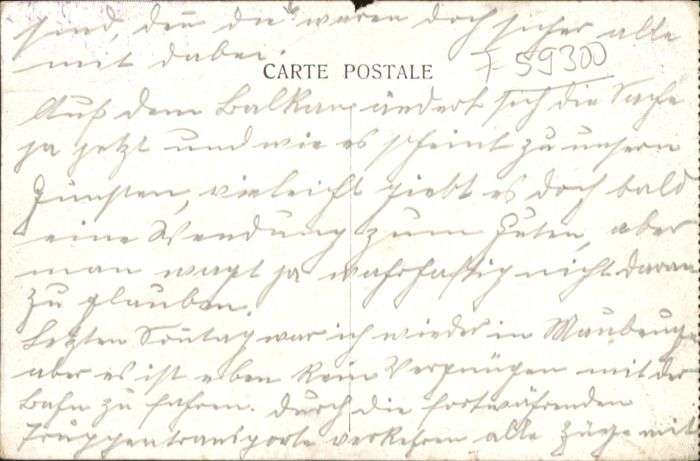 sind, den die waren doch sicher alle
mit dabei.
CARTE POSTALE
F 59300
Auf dem Balkan ändert sich die Sache
ja jetzt und wie es scheint zu unsern
Gunsten, vieleicht giebt es doch bald
eine Wendung zum Guten, aber
man wagt ja wahrhaftig nicht daran
zu glauben.
Letzten Sontag war ich wieder in Maubeuge
aber es ist eben kein Vergnügen mit der
Bahn zu fahren. Durch die fortwährenden
Truppentransporte verkehren alle Züge mit